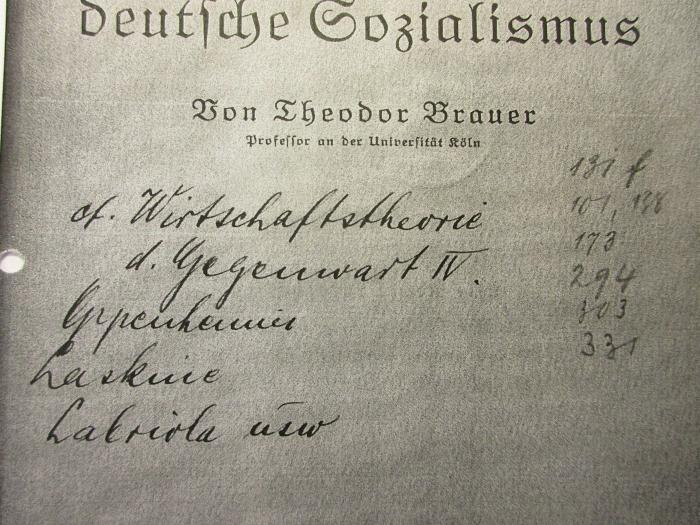 deutsche Sozialismus
Von Theodor Brauer
Professor an der Universität Köln
131 f
cf. Wirtschaftstheorie 101, 138
d. Gegenwart IV. 173
294
Oppenheimer 303
Laskine 331
Labriola usw